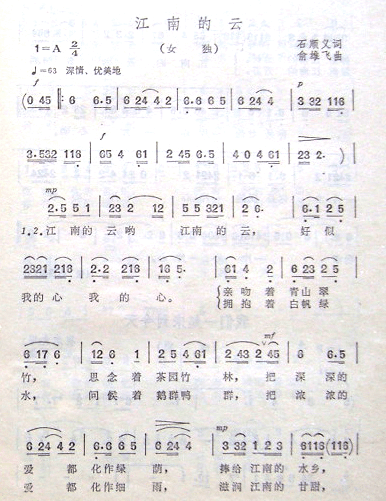 江南的云
1=A 2/4
(女 独)
石顺义词
俞雄飞曲
♩=63 深情、优美地
f
p
(0 45 | 6 6·5 | 6 24 4 2 | 6·6 6 5 | 6·1 4 | 3 32 116 |
f
3·532 116 | 65 4 61 | 2 45 6·5 | 4 0 4 61 | 23 2· )
mp
2·5 5 1 | 23 2 12 | 5 5 321 | 2 6· | 6·1 2 5 |
1.2.江 南的 云 哟 江 南的 云, 好 似
2321 216 | 2·2 216 | 16 5· | 61 4 2 | 6 23 2 5 |
我的 心 我 的 心。 亲 吻 着 青山 翠
拥 抱 着 白帆 绿
mf
6 17 6 | 12 6 1 | 2 5 4 61 | 2 43 2 45 | 6 6·5 |
竹, 思 念 着 茶园 竹 林, 把 深 深的
水, 问 候 着 鹅群 鸭 群, 把 浓 浓的
mp
6 24 4 2 | 6·6 6 5 | 6 24 4 | 3 32 1 23 | 6116 (116) |
爱 都 化作 绿 荫, 捧给 江南的 水乡,
爱 都 化作 细 雨, 滋润 江南的 甘甜,